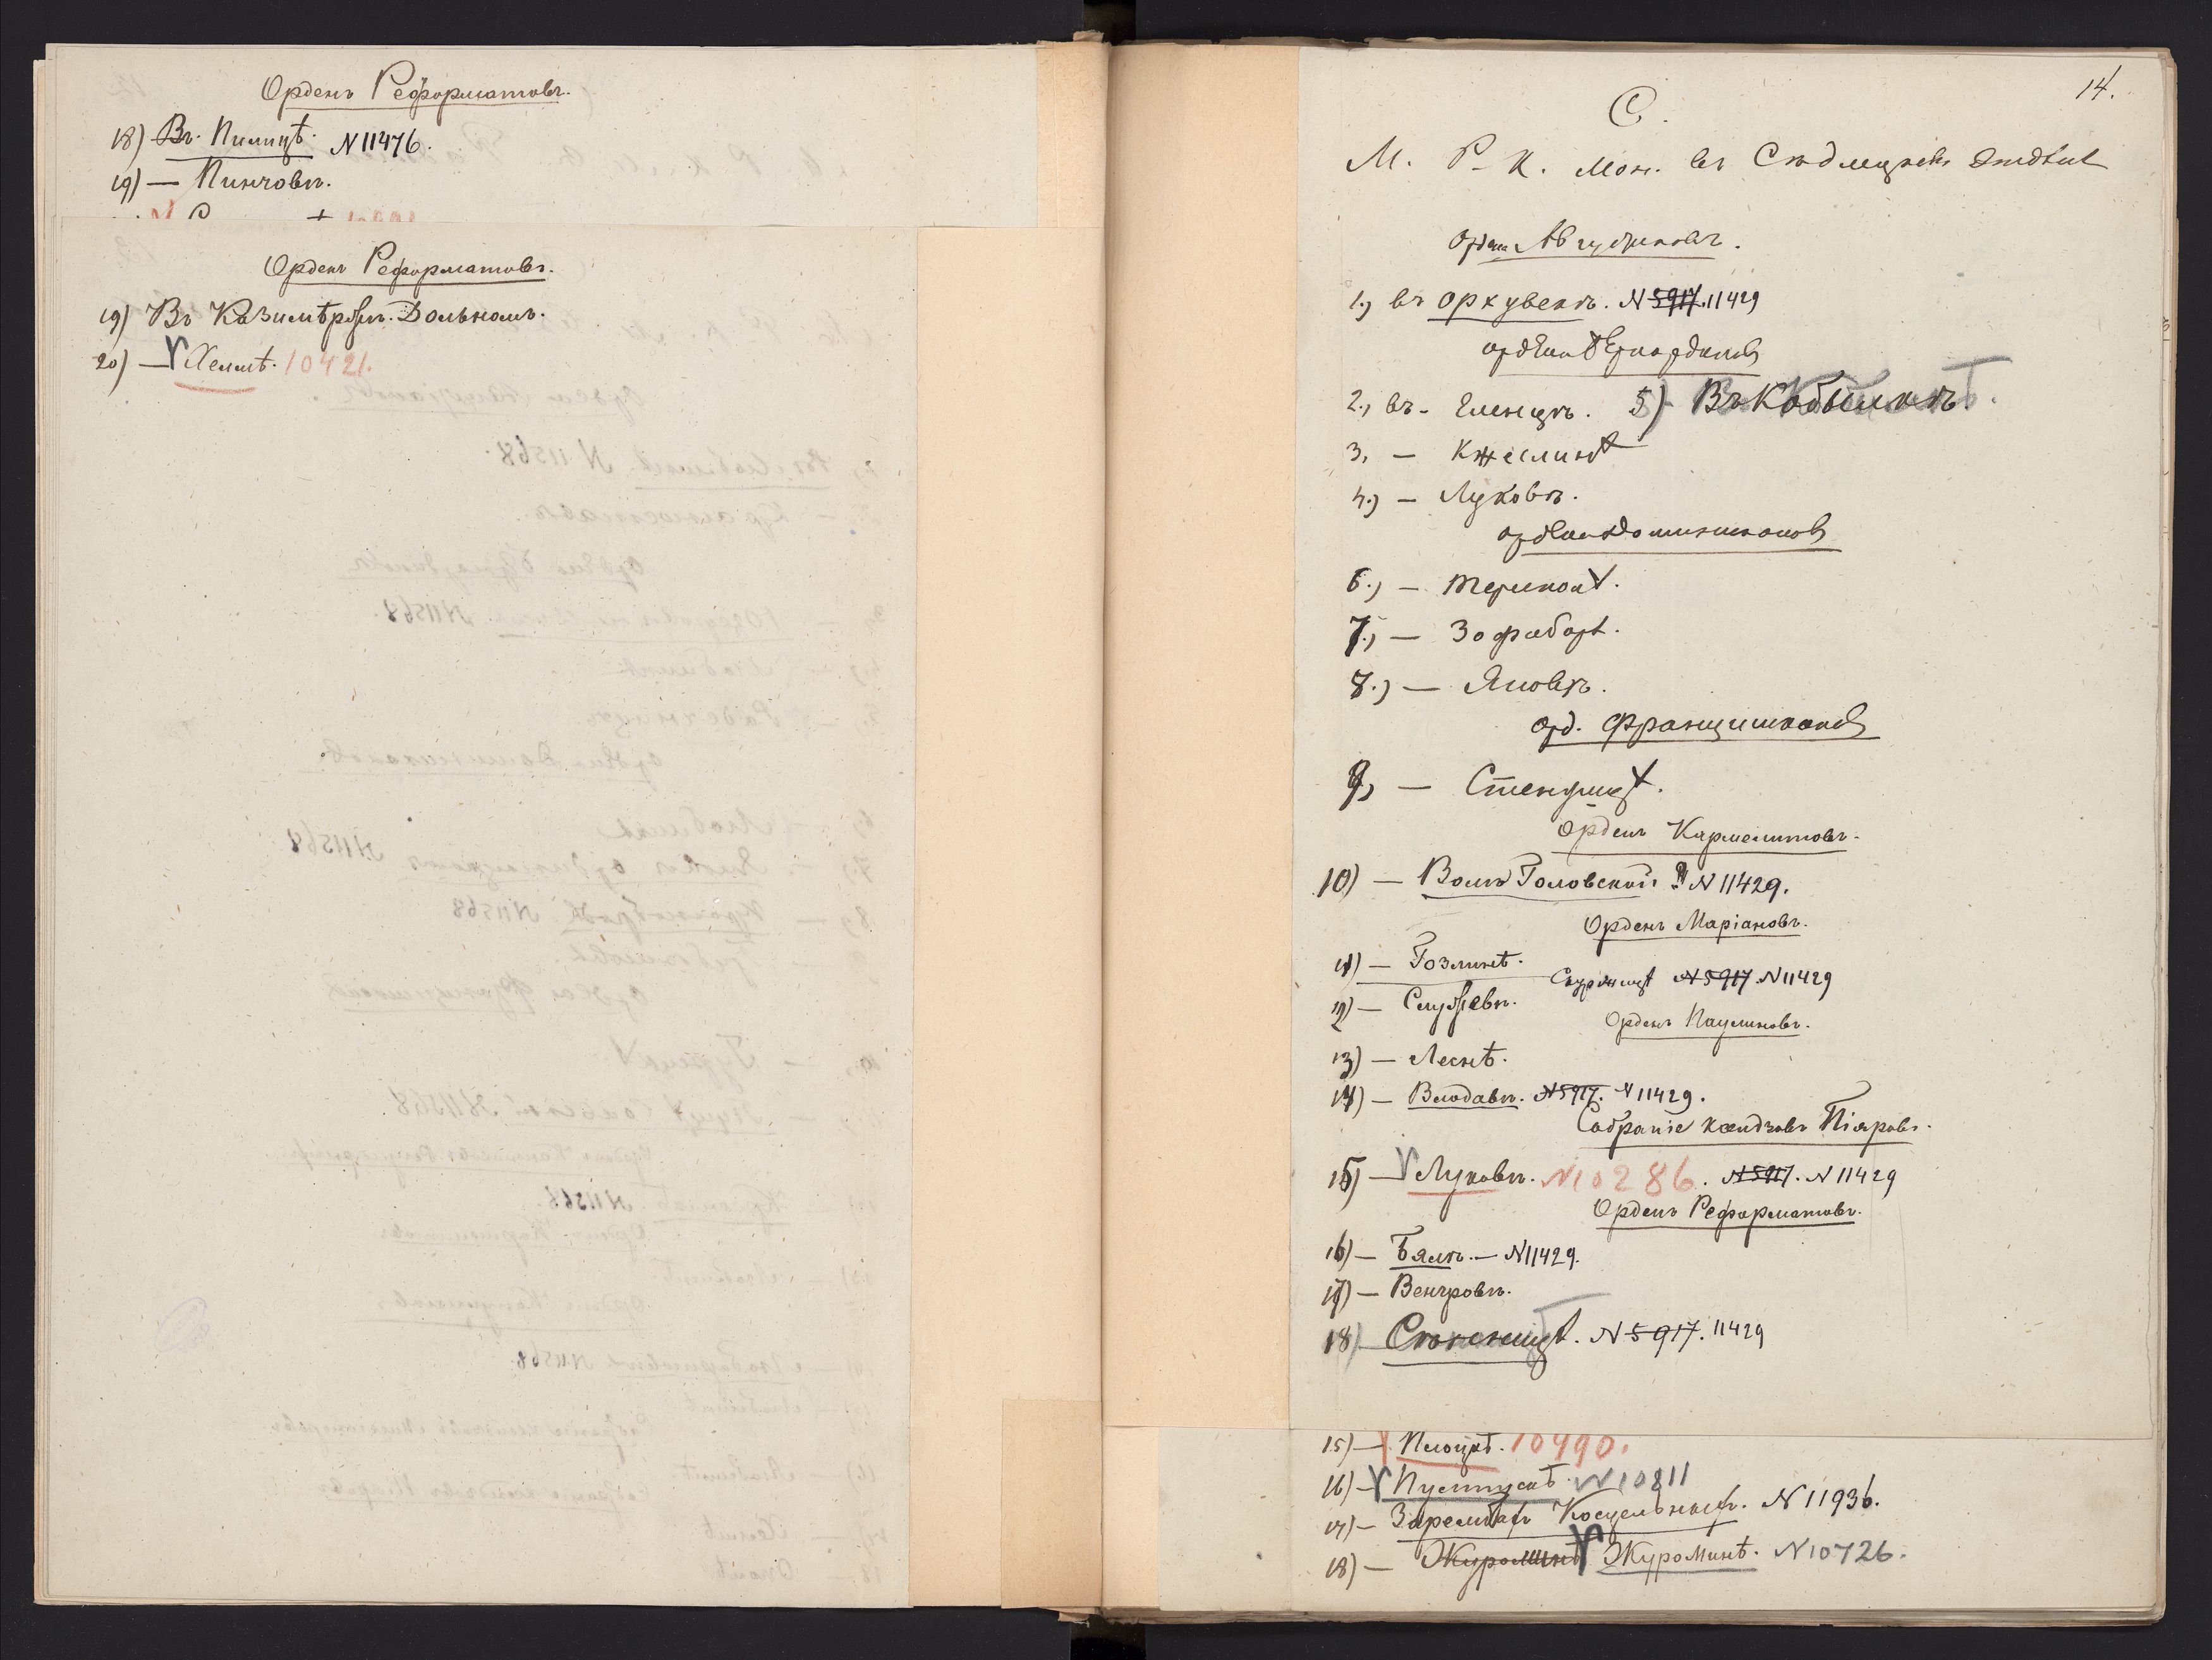 Орденъ Реформатовъ.
18) Въ Пилицѣ. N 11476.
19) — Пинчовѣ.
Орденъ Реформатовъ.
19) Въ Казимѣржѣ. Дольномъ.
20) — Хелмѣ. 10421.
14.
С.
М. Р. К. Мон. въ Сѣдлецкой
Орден Августиновъ.
1.) въ Орхувекѣ. N 5917. 11429
ордена Бернардинов
2., въ - Еленцѣ. 5) Въ Кобылкѣ.
3, — Кжеслинѣ
4.) — Луковѣ.
ордена Доминиканов
6.) — Терцконѣ.
7.) — Зофиборѣ.
8.) — Яновѣ.
орд. Францишканов
9, — Стенжицѣ.
Орденъ Кармелитовъ.
10) — Волѣ Головской N 11429.
Орденъ Маріановъ.
11) — Гозлинѣ.
Скуржецѣ N 5917. N 11429
12) — Служевѣ.
Орденъ Паулиновъ.
13) — Леснѣ.
14) — Влодавѣ. N 5917. N 11429.
Собраніе ксендзовъ Піяровъ.
15) — Луковѣ. N 10286. N 5917. N 11429
Орденъ Реформатовъ.
16) — Бялѣ. — N 11429.
17) — Венгровѣ.
18) N 5917. 11429
15) — Плоцкѣ. 10490.
16) — Пултускѣ. N 10811
17) — Зарембахъ Косцельныхъ. N 11936.
18) — Журоминѣ Журоминѣ. N 10726.